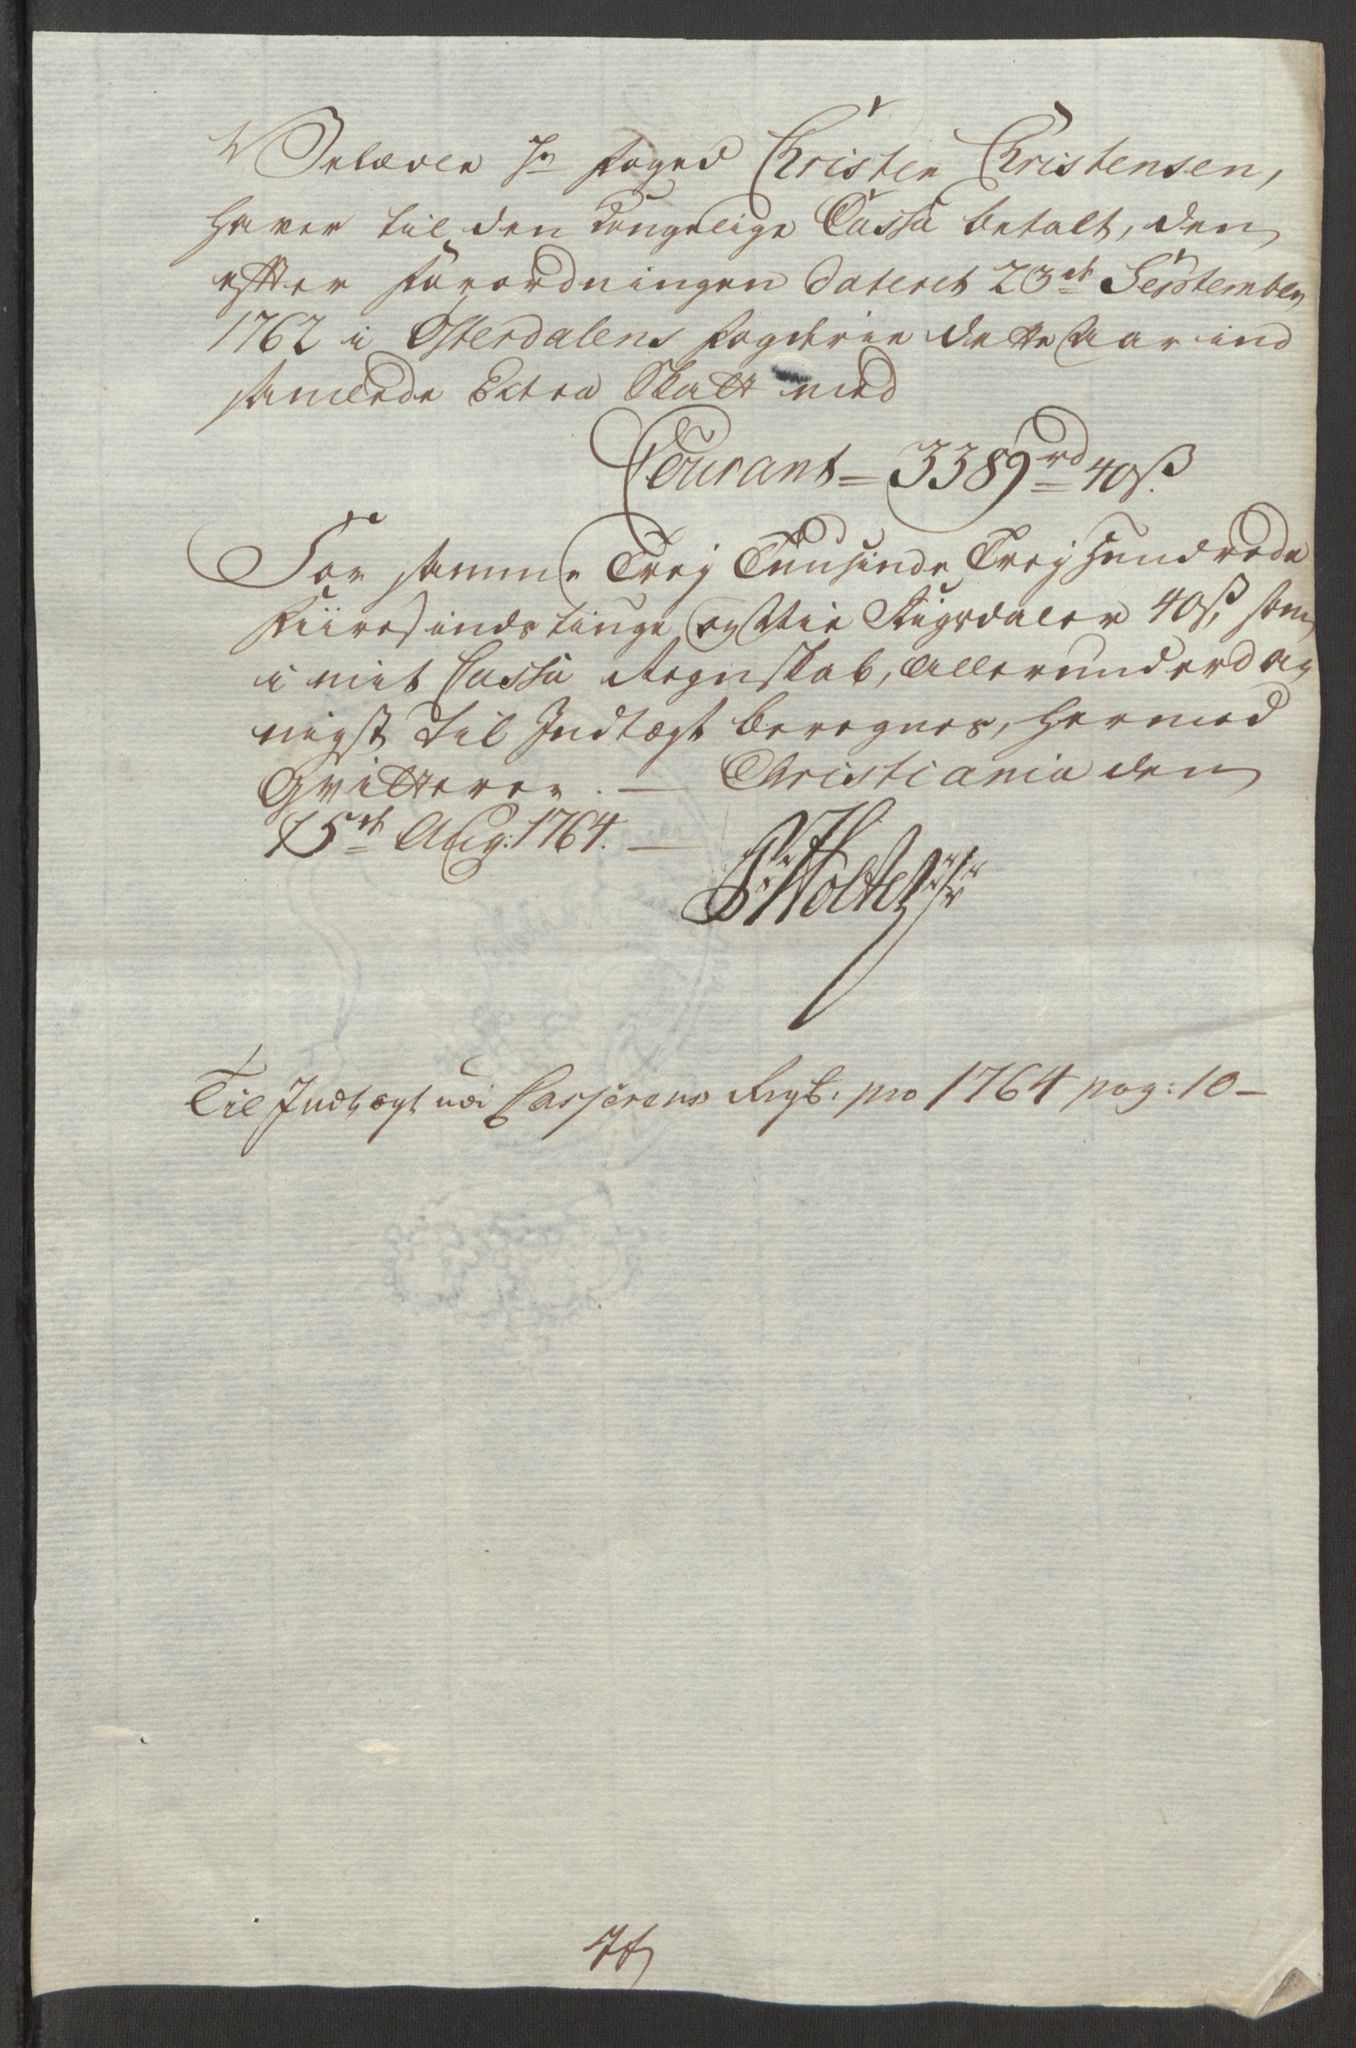 Velædle Hr Foged Christen Christensen,
haver til den Kongelige Cassa betalt, den
efter Forordningen dateret 23de September
1762 i Østerdalens Fogderie dette Aar ind
samlede Extra Skatt med
Courant = 3389 rd 40 ß.
For samme Trej Tuusinde Trej Hundrede
Fiiresindstiuge og Nie Rigsdaler 40 ß, som
i mit Cassa Regnskab, Allerunderda
nigst til Indtægt beregnes, hermed
Qvitterer. — Christiania den
15de Aug: 1764. —
P Holter
Til Indtægt udi Casserens Regsk. pro 1764 pag: 10 —